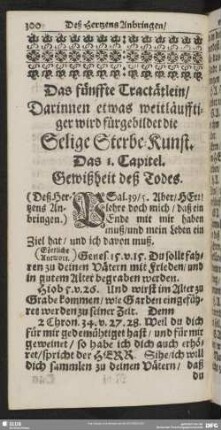 300 Deß Hertzens Anbringen/
Das fünffte Tractätlein/
Darinnen etwas weitläuffti-
ger wird fürgebildet die
Selige Sterbe-Kunst.
Das 1. Capitel.
Gewißheit deß Todes.
(Deß Her- PSal. 39/5. Aber/ HErr
tzens An- lehre doch mich / daß ein
bringen.) Ende mit mir haben
muß/ und mein Leben ein
Ziel hat / und ich davon muß.
(Göttliche Antwort. Genes. 15. v. 15. Du sollt fah-
ren zu deinen Vätern mit Frieden/ und
in gutem Alter begraben werden.
Hiob 5. v. 26. Und wirst im Alter zu
Grabe kommen/ wie Garben eingefüh-
ret werden zu seiner Zeit. Denn
2 Chron. 34. v. 27. 28. Weil du dich
für mir gedemühtiget hast / und für mir
geweinet / so habe ich dich auch erhö-
ret/ spricht der HERR. Sihe/ ich will
dich sammlen zu deinen Vätern / daß
du